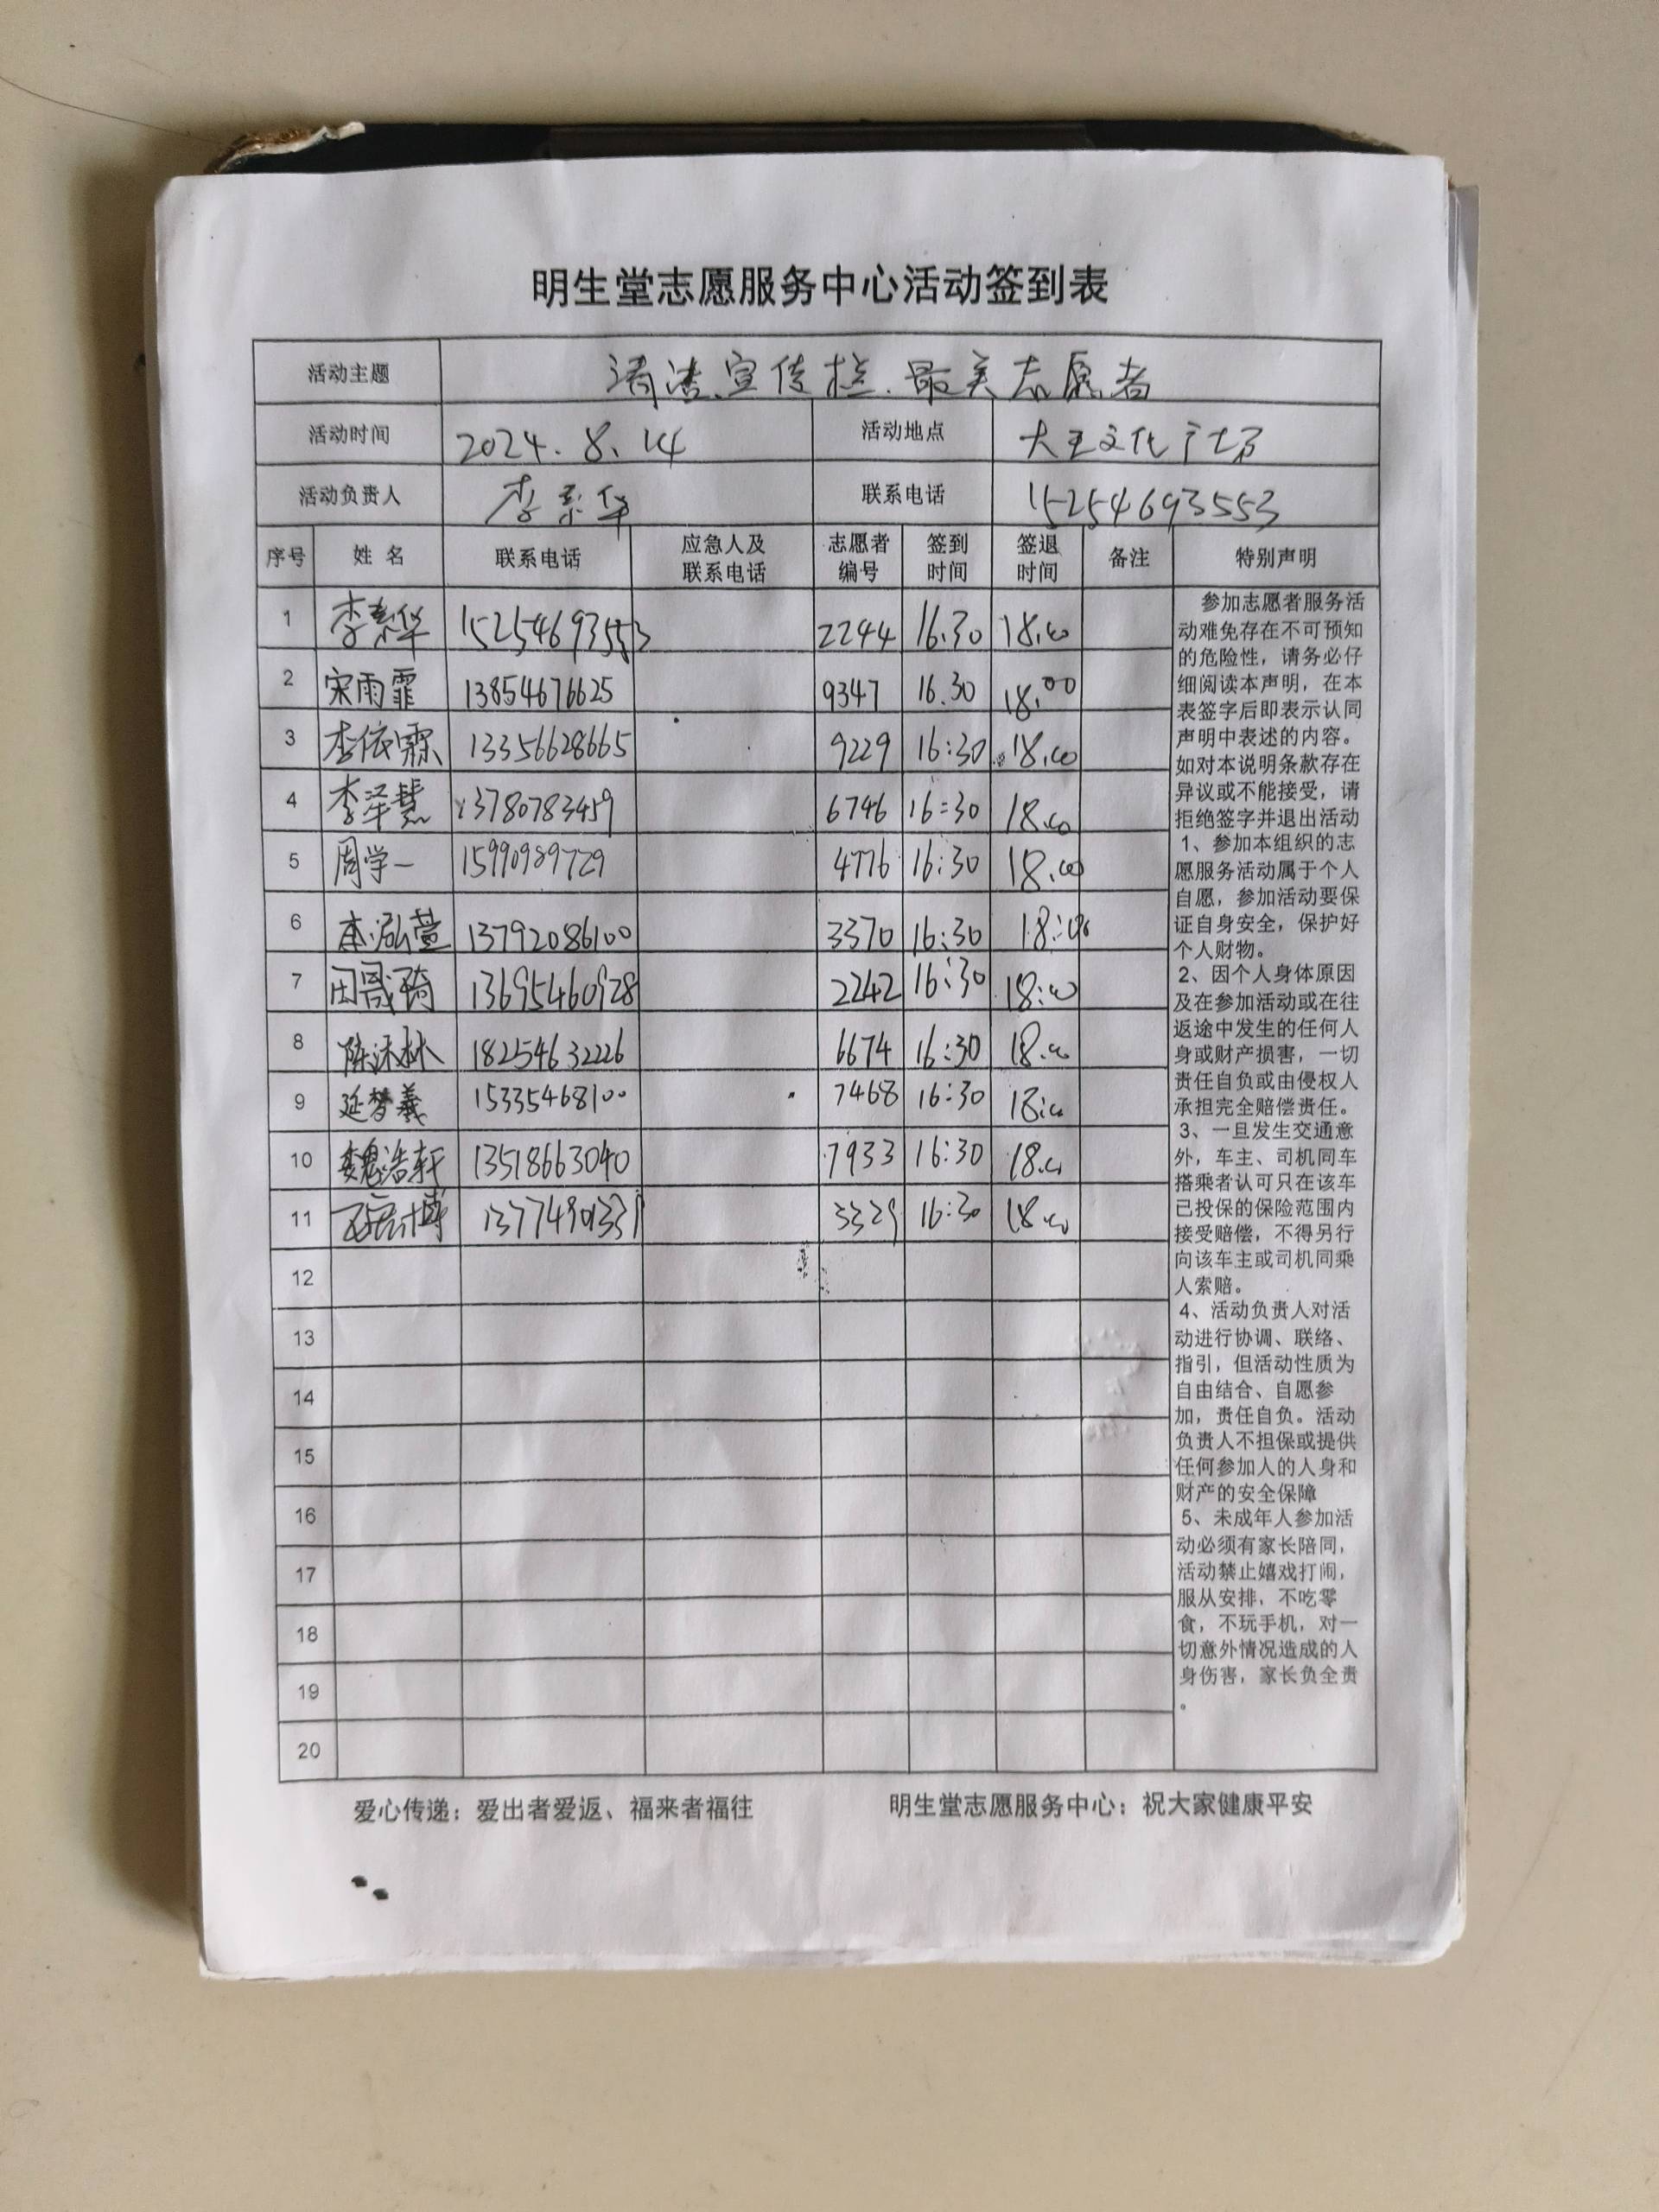 明生堂志愿服务中心活动签到表
活动主题 清洁宣传栏、最美志愿者
活动时间 2024.8.14 活动地点 大王文化广场
活动负责人 李素华 联系电话 15254693553
序号 姓名 联系电话 应急人及联系电话 志愿者编号 签到时间 签退时间 备注 特别声明
1 李素华 15254693553 2244 16.30 18.00
2 宋雨霏 13854676625 9347 16.30 18.00
3 李依霖 13356628665 9229 16:30 18.00
4 李泽慧 13780783459 6746 16:30 18.00
5 周学一 15990989729 4776 16:30 18.00
6 李泓萱 13792086100 3370 16:30 18:00
7 田晟琦 13695460928 2242 16:30 18:00
8 陈沐林 18254632226 6674 16:30 18.00
9 延梦羲 15335468100 7468 16:30 18:00
10 魏浩轩 13518663040 7933 16:30 18.00
11 博 13774901331 3329 16:30 18.00
12
13
14
15
16
17
18
19
20
参加志愿者服务活
动难免存在不可预知
的危险性，请务必仔
细阅读本声明，在本
表签字后即表示认同
声明中表述的内容。
如对本说明条款存在
异议或不能接受，请
拒绝签字并退出活动
1、参加本组织的志
愿服务活动属于个人
自愿，参加活动要保
证自身安全，保护好
个人财物。
2、因个人身体原因
及在参加活动或在往
返途中发生的任何人
身或财产损害，一切
责任自负或由侵权人
承担完全赔偿责任。
3、一旦发生交通意
外，车主、司机同车
搭乘者认可只在该车
已投保的保险范围内
接受赔偿，不得另行
向该车主或司机同乘
人索赔。
4、活动负责人对活
动进行协调、联络、
指引，但活动性质为
自由结合、自愿参
加，责任自负。活动
负责人不担保或提供
任何参加人的人身和
财产的安全保障
5、未成年人参加活
动必须有家长陪同，
活动禁止嬉戏打闹，
服从安排，不吃零
食，不玩手机，对一
切意外情况造成的人
身伤害，家长负全责
。
爱心传递：爱出者爱返、福来者福往 明生堂志愿服务中心：祝大家健康平安